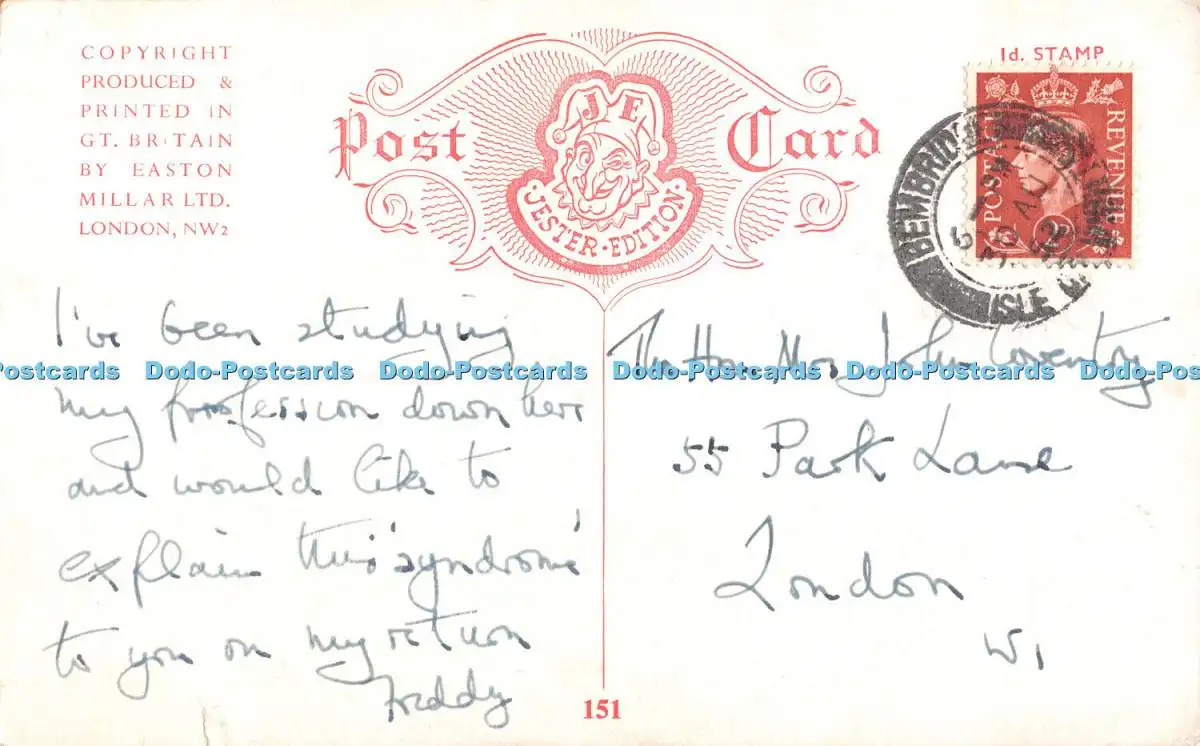 COPYRIGHT
PRODUCED &
PRINTED IN
GT. BRITAIN
BY EASTON
MILLAR LTD.
LONDON, NW2
Post Card
J E
JESTER · EDITION
1d. STAMP
POSTAGE
REVENUE
BEMBRIDGE
ISLE OF
I've been studying
my profession down here
and would like to
explain this 'syndrome'
to you on my return
Freddy
The Hon Mrs John Coventry
55 Park Lane
London
W1
151
Dodo-Postcards Dodo-Postcards Dodo-Postcards Dodo-Postcards Dodo-Postcards Dodo-Postcards